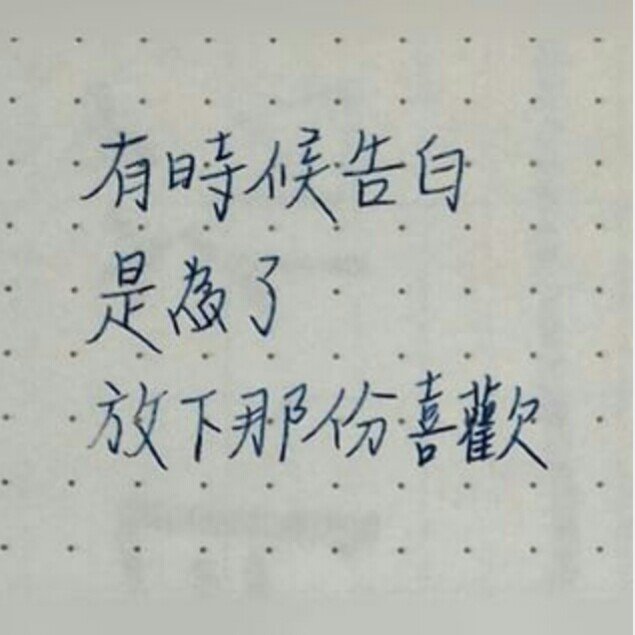 有時候告白
是為了
放下那份喜歡